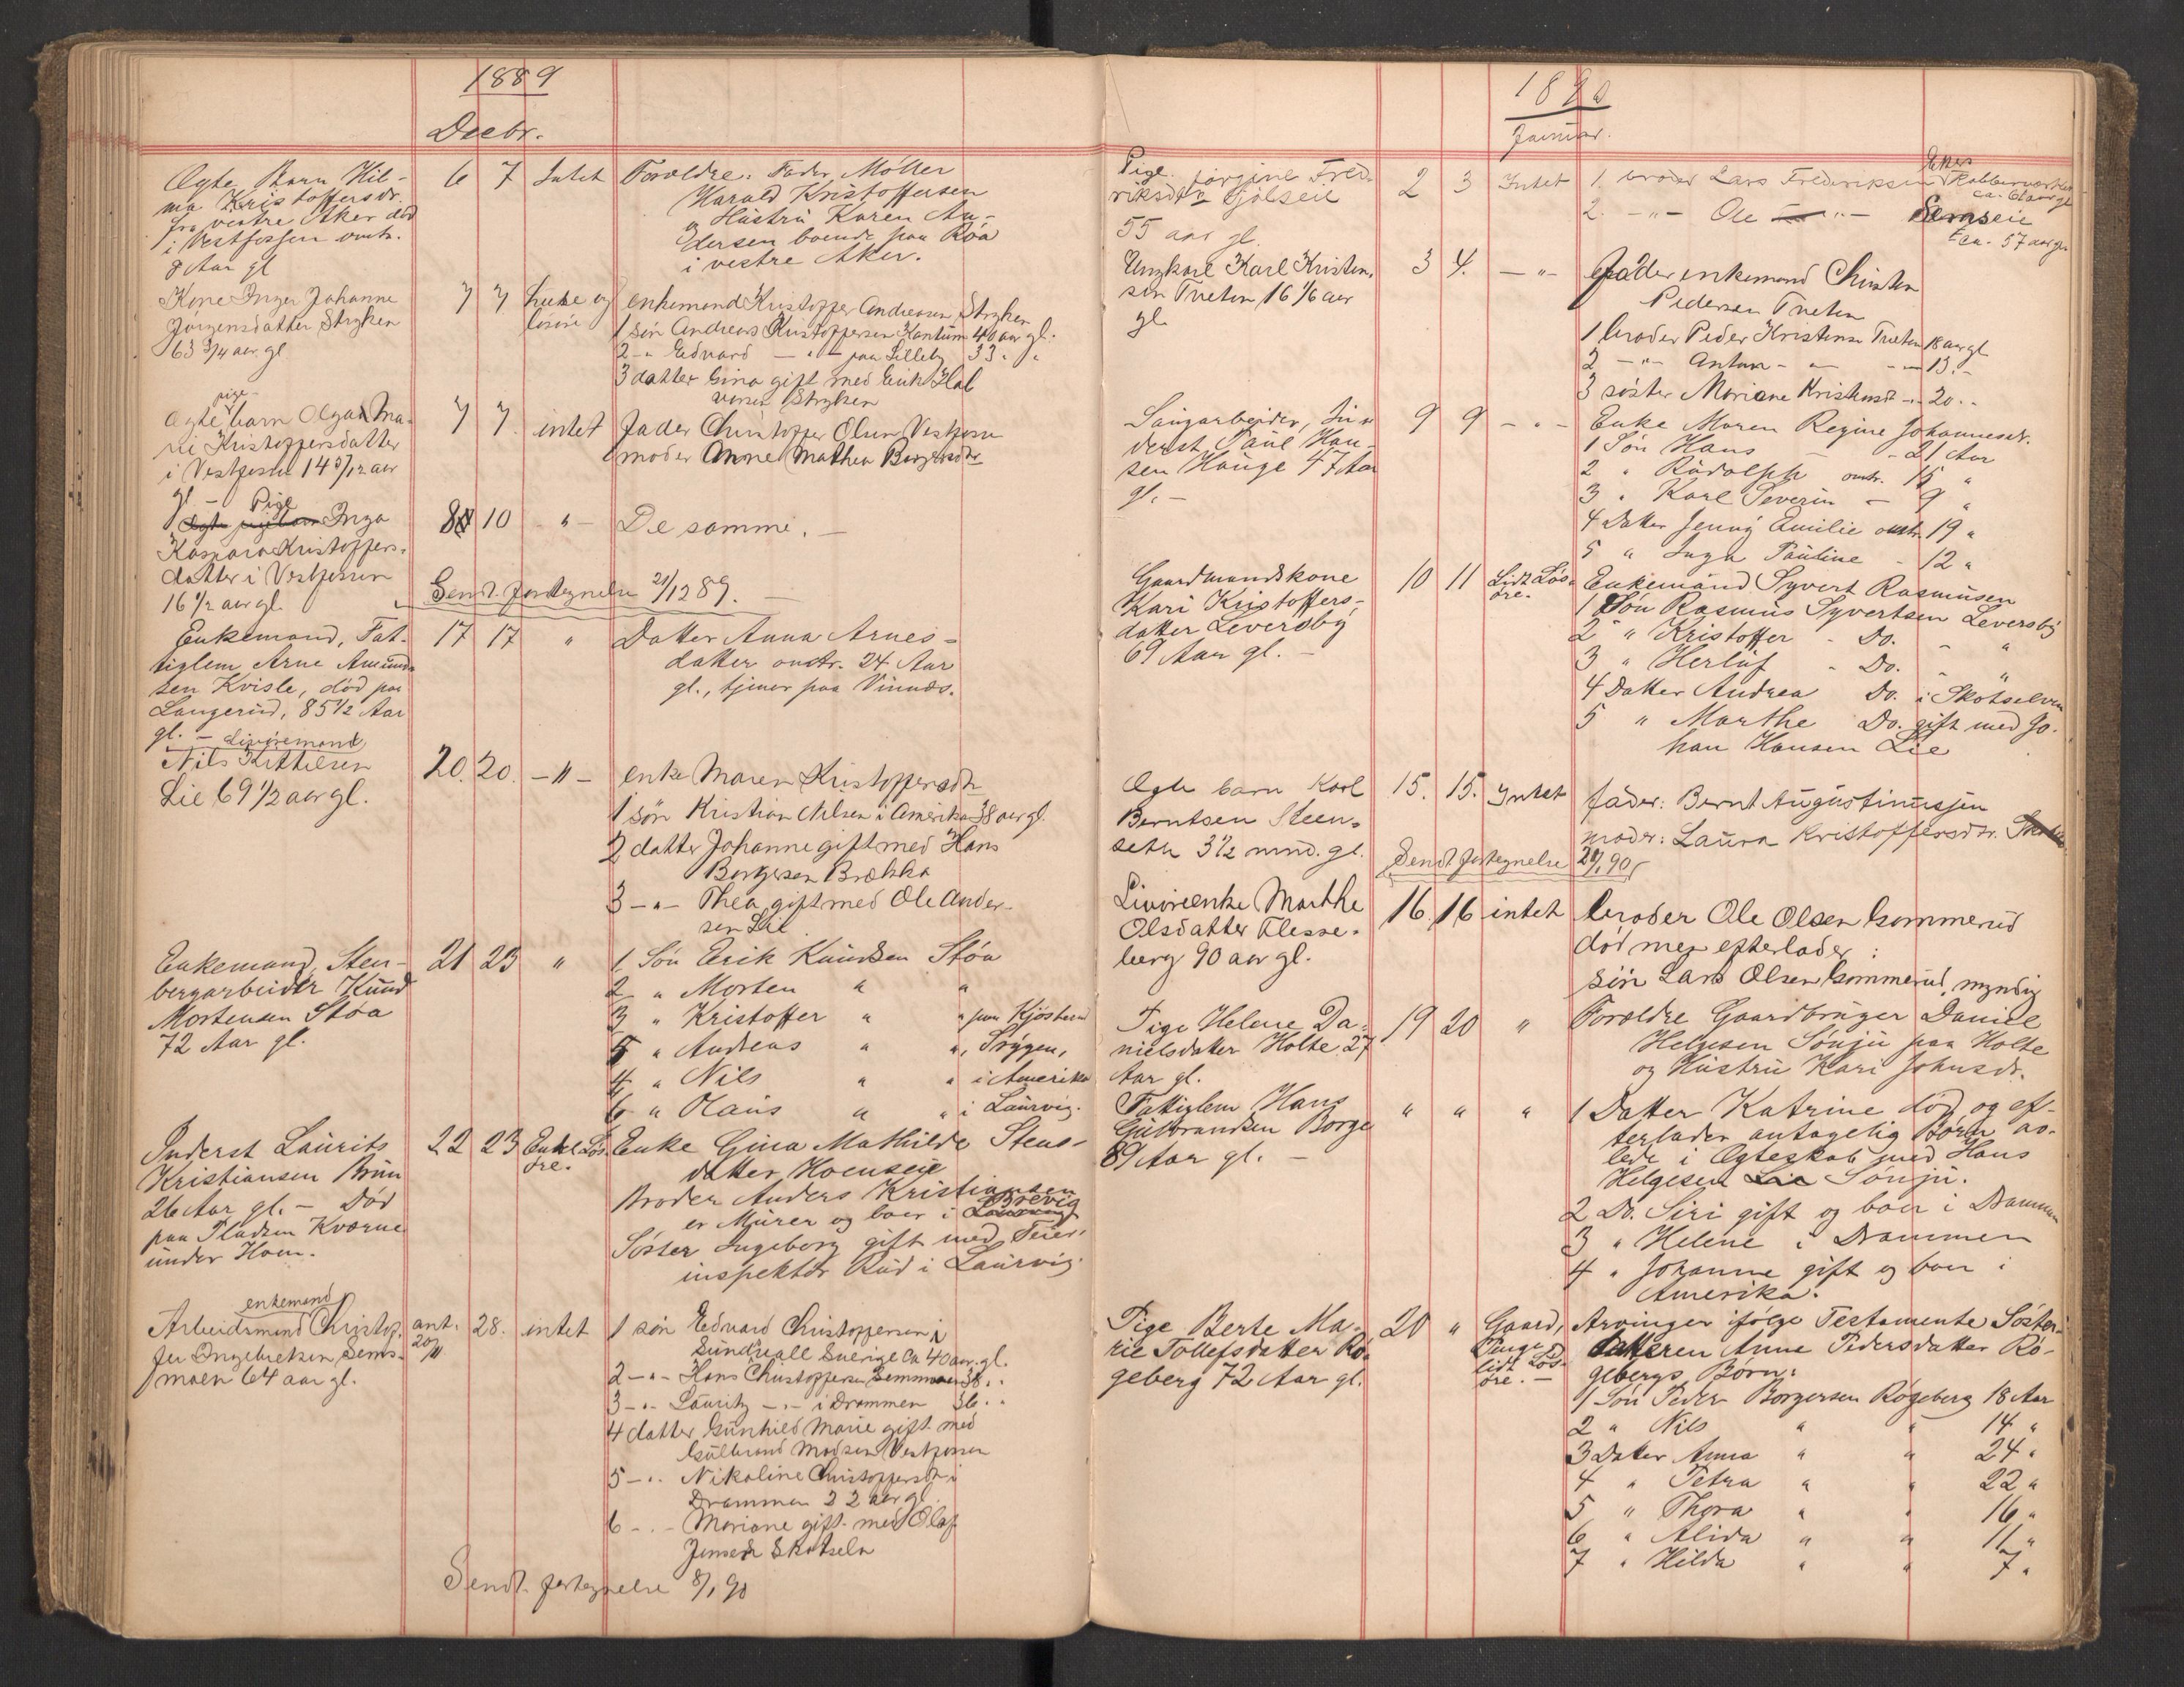 1889
Decbr.
Ægte Barn Hil-
ma Kristoffersdr.
fra vestre Aker død
i Vestfossen omtr.
8 Aar gl
6 7 Intet
Forældre: Fader, Møller
Harald Kristoffersen
Hustru Karen An-
dersen boende paa Røa
i vestre Aker.
Kone Inger Johanne
Jørgensdatter Stryken
63 3/4 aar gl
7 7 Lidt og
løsøre
enkemand Kristoffer Andreasen Stryken
1 søn Andreas Kristoffersen Kontum 40 aar gl.
2 -"- Edvard -"- paa Lilleby 33 " "
3 datter Gina gift med Erik Hal
vorsen Stryken
pige-
Ægte barn Olga Ma-
rie Kristoffersdatter
i Vestfossen 14 9/12 aar
gl -
7 7 intet
Fader Christoffer Olsen Vestfossen
moder Anne Mathea Borgersdtr
Pige
Ægte pigebarn Inga
Kaspara Kristoffers-
datter i Vestfossen
16 1/2 aar gl.
8 10 - " -
De samme. -
Sendt fortegnelse 21/12 89. -
Enkemand, Fat-
tiglem Arne Amund-
sen Kvisle, død paa
Langerud, 85 1/2 Aar
gl. -
17 17 "
Datter Anna Arnes-
datter omtr. 24 Aar
gl., tjener paa Vinnæs.
Livøremand
Nils Kittilsen
Lie 69 1/2 aar gl.
20. 20. - " -
enke Maren Kristoffersdtr
1 søn Kristian Nilsen i Amerika 38 aar gl.
2 datter Johanne gift med Hans
Borgersen Brekka
3 -"- Thea gift med Ole Ander-
sen Lie
Enkemand, Sten-
bergarbeider Knud
Mortensen Støa
72 Aar gl.
21 23 "
1 Søn Erik Knudsen Støa
2 " Morten " "
3 " Kristoffer " " paa Kjøsterud
5 " Andreas " ", Trygen,
4 " Nils " " i Amerika
6 " Olaus " " i Laurvig.
Inderst Laurits
Kristiansen Brun
26 Aar gl. - Død
paa Pladsen Kværne
under Hoen.
22 23 Enkel Løs-
øre.
Enke Gina Mathilde Stens-
datter Hoenseie
Broder Anders Kristiansen
er Murer og boer i Laurvig Brevig
Søster Ingeborg gift med Feier-
inspektør Rud i Laurvig.
enkemand
Arbeidsmand Christof-
fer Ingebretsen Sems-
moen 64 aar gl.
ant.
20/11
28. intet
1 søn Edvard Christoffersen i
Sundsvall Sverige ca 40 aar gl.
2 -"- Hans Christoffersen Semsmoen 38 " "
3 -"- Lauritz -"- i Drammen 36 " "
4 datter Gunhild Marie gift med
Gulbrand Madsen Vestfossen
5 -"- Nikoline Christoffersdtr i
Drammen 22 aar gl.
6 -"- Mariane gift med Olaf
Jensen Skotselv
Sendt fortegnelse 8/1 90
1890
Januar.
Pige Jørgine Fred-
riksdtr Fjølseie
55 aar gl.
2 3 Intet
1. broder Lars Frederiksen Ekers Kobberværket
ca. 61 aar gl
2. -"- Ole -"- Semseie
ca. 57 aar gl
Ungkarl Karl Kristen-
sen Tveten 16 1/6 aar
gl.
3 4. - " -
Fader enkemand Christen
Pedersen Tveten
1 broder Peder Kristensen Tveten 18 aar gl
2 -"- Anton -"- -"- 13 -
3 søster Mariane Kristensdt -"- 20 -
Saugarbeider, In-
derst Paul Han-
sen Hauge 47 Aar
gl. -
9 9 - " -
Enke Maren Regine Johannesdr.
1 Søn Hans - 21 Aar
2 " Rudolph omtr. 15 "
3 " Karl Severin - 9 "
4 Datter Jenny Emilie omtr. 19 "
5 " Inga Pauline - 12 "
Gaardmandskone
Kari Kristoffers-
datter Leversby
69 Aar gl. -
10 11 Lidt Løs-
øre.
Enkemand Syvert Rasmusen
1 Søn Rasmus Syvertsen Leversby
2 " Kristoffer - Do. - "
3 " Herluf - Do. - "
4 Datter Andrea Do. i Skotselven
5 " Marthe Do. gift med Jo-
han Hansen Lie
Ægte barn Karl
Berntsen Steen-
seth 3 1/2 mnd. gl.
15. 15. Intet
fader: Bernt Augustinussen
moder: Laura Kristoffersdtr.
Sendt fortegnelse 20/1 90
Livøreenke Marthe
Olsdatter Flesse-
berg 90 aar gl.
16. 16 intet
broder Ole Olsen Gommerud
død men efterlader :
søn Lars Olsen Gommerud, myndig
Pige Helene Da-
nielsdatter Holte 27
Aar gl.
19 20 "
Forældre Gaardbruger Daniel
Helgesen Sønju paa Holte
og Hustru Kari Johnsdr.
Fattiglem Hans
Gulbrandsen Borge
89 Aar gl. -
" " "
1 Datter Katrine død og ef-
terlader antagelig Børn av-
lede i Ægteskab med Hans
Helgesen Lie Sønju.
2 Do. Siri gift og boer i Drammen
3 " Helene i Drammen
4 " Johanne gift og boer i
Amerika.
Pige Berte Ma-
rie Tollefsdatter Rø-
geberg 72 Aar gl.
20 " Gaard,
Penge,
lidt Løs-
øre. -
Arvinger ifølge Testamente Søster-
datteren Anne Pedersdatter Rø-
gebergs Børn:
1 Søn Peder Borgersen Røgeberg 18 Aar
2 " Nils " " 14 "
3 Datter Anna " " 24 "
4 " Petra " " 22 "
5 " Thora " " 16 "
6 " Alida " " 11 "
7 " Hilda " " 7 "